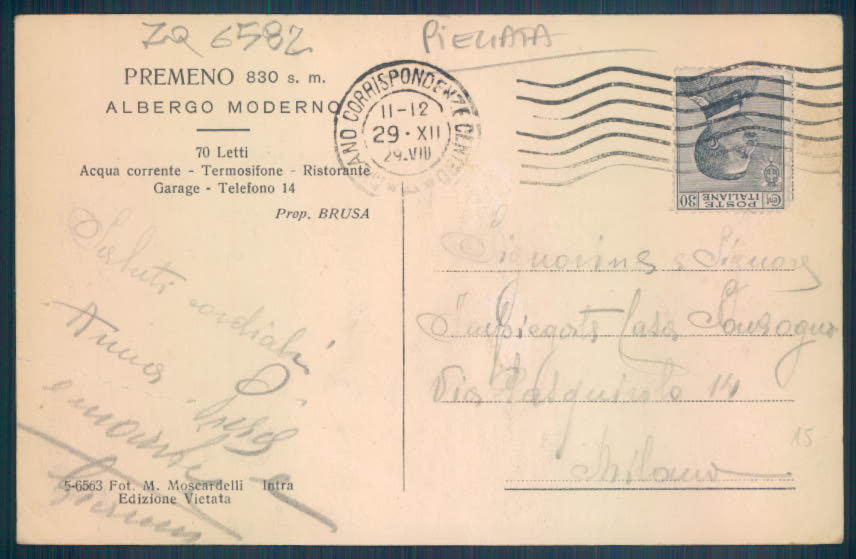 ZQ 6582
PIEGATA
PREMENO 830 s. m.
ALBERGO MODERNO
70 Letti
Acqua corrente - Termosifone - Ristorante
Garage - Telefono 14
Prop. BRUSA
MILANO CORRISPONDENZE CENTRO
11-12
29·XII
29·VIII
POSTE
ITALIANE
Cmi 30
Saluti cordiali
Anna
Signorine e Signora
Impiegate Casa Sonzogno
Via Pasquirolo 14
Milano
15
5-6563 Fot. M. Moscardelli Intra
Edizione Vietata